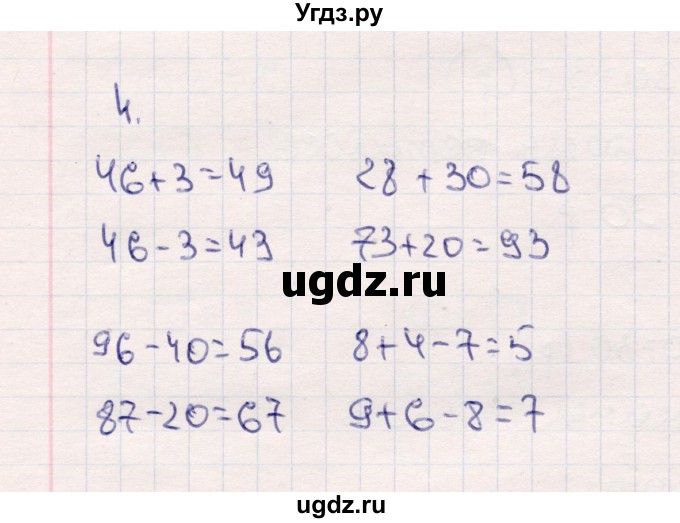 Угдз.ру
4.
46+3=49 28+30=58
46-3=43 73+20=93
ugdz.ru
96-40=56 8+4-7=5
87-20=67 9+6-8=7
ugdz.ru